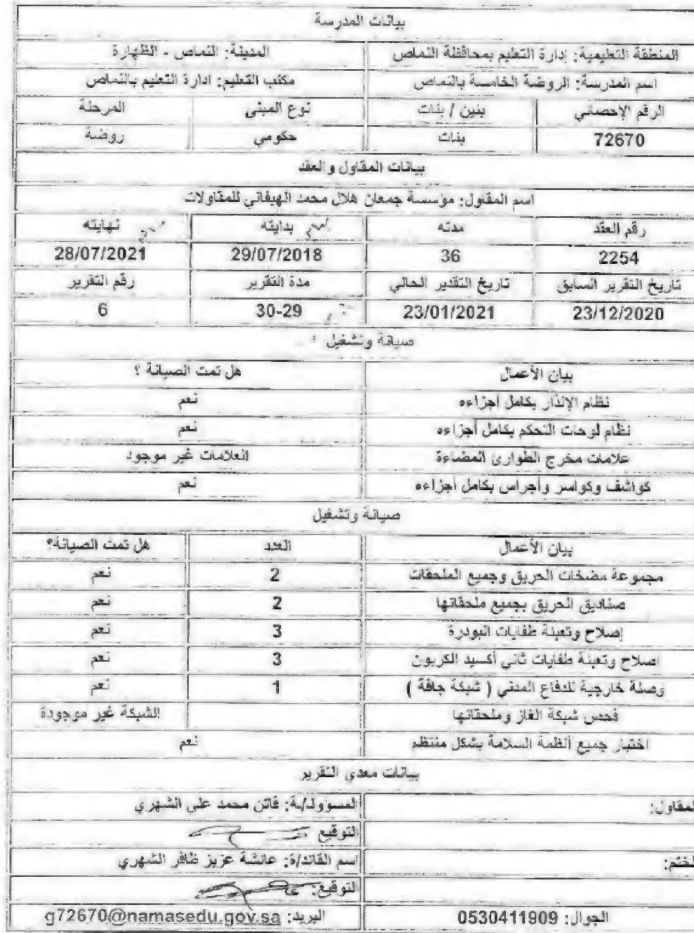 بيانات المدرسة
المنطقة التعليمية: إدارة التعليم بمحافظة النماص المدينة: النماص - الظهارة
اسم المدرسة: الروضة الخامسة بالنماص مكتب التعليم: ادارة التعليم بالنماص
الرقم الإحصائي بنين / بنات نوع المبنى المرحلة
72670 بنات حكومي روضة
بيانات المقاول والعقد
اسم المقاول: مؤسسة جمعان هلال محمد الهيفاني للمقاولات
رقم العقد مدته بدايته نهايته
2254 36 29/07/2018 28/07/2021
تاريخ التقرير السابق تاريخ التقدير الحالي مدة التقرير رقم التقرير
23/12/2020 23/01/2021 30-29 6
صيانة وتشغيل
بيان الأعمال هل تمت الصيانة ؟
نظام الإنذار بكامل اجزاءه نعم
نظام لوحات التحكم بكامل أجزاءه نعم
علامات مخرج الطوارئ المضاءة العلامات غير موجود
كواشف وكواسر وأجراس بكامل اجزاءه نعم
صيانة وتشغيل
بيان الأعمال العدد هل تمت الصيانة؟
مجموعة مضخات الحريق وجميع الملحقات 2 نعم
صناديق الحريق بجميع ملحقاتها 2 نعم
إصلاح وتعبئة طفايات البودرة 3 نعم
اصلاح وتعبئة طفايات ثاني أكسيد الكربون 3 نعم
وصلة خارجية للدفاع المدني ( شبكة جافة ) 1 نعم
فحص شبكة الغاز وملحقاتها الشبكة غير موجودة
اختبار جميع أنظمة السلامة بشكل منتظم نعم
بيانات معدي التقرير
المقاول: المسوول/ـة: فاتن محمد علي الشهري
التوقيع
الختم: اسم القائد/ة: عائشة عزيز ظافر الشهري
التوقيع:
الجوال: 0530411909 البريد: g72670@namasedu.gov.sa